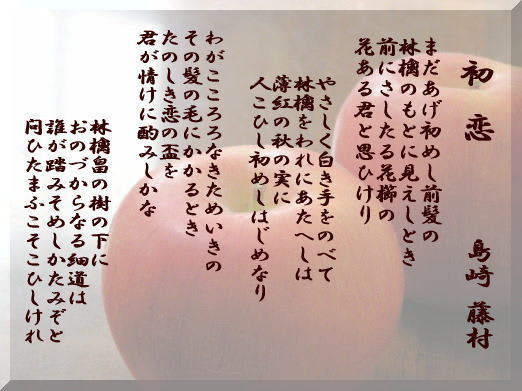 初恋
島崎 藤村
まだあげ初めし前髪の
林檎のもとに見えしとき
前にさしたる花櫛の
花ある君と思ひけり
やさしく白き手をのべて
林檎をわれにあたへしは
薄紅の秋の実に
人こひ初めしはじめなり
わがこころなきためいきの
その髪の毛にかかるとき
たのしき恋の盃を
君が情けに酌みしかな
林檎畠の樹の下に
おのづからなる細道は
誰が踏みそめしかたみぞと
問ひたまふこそこひしけれ